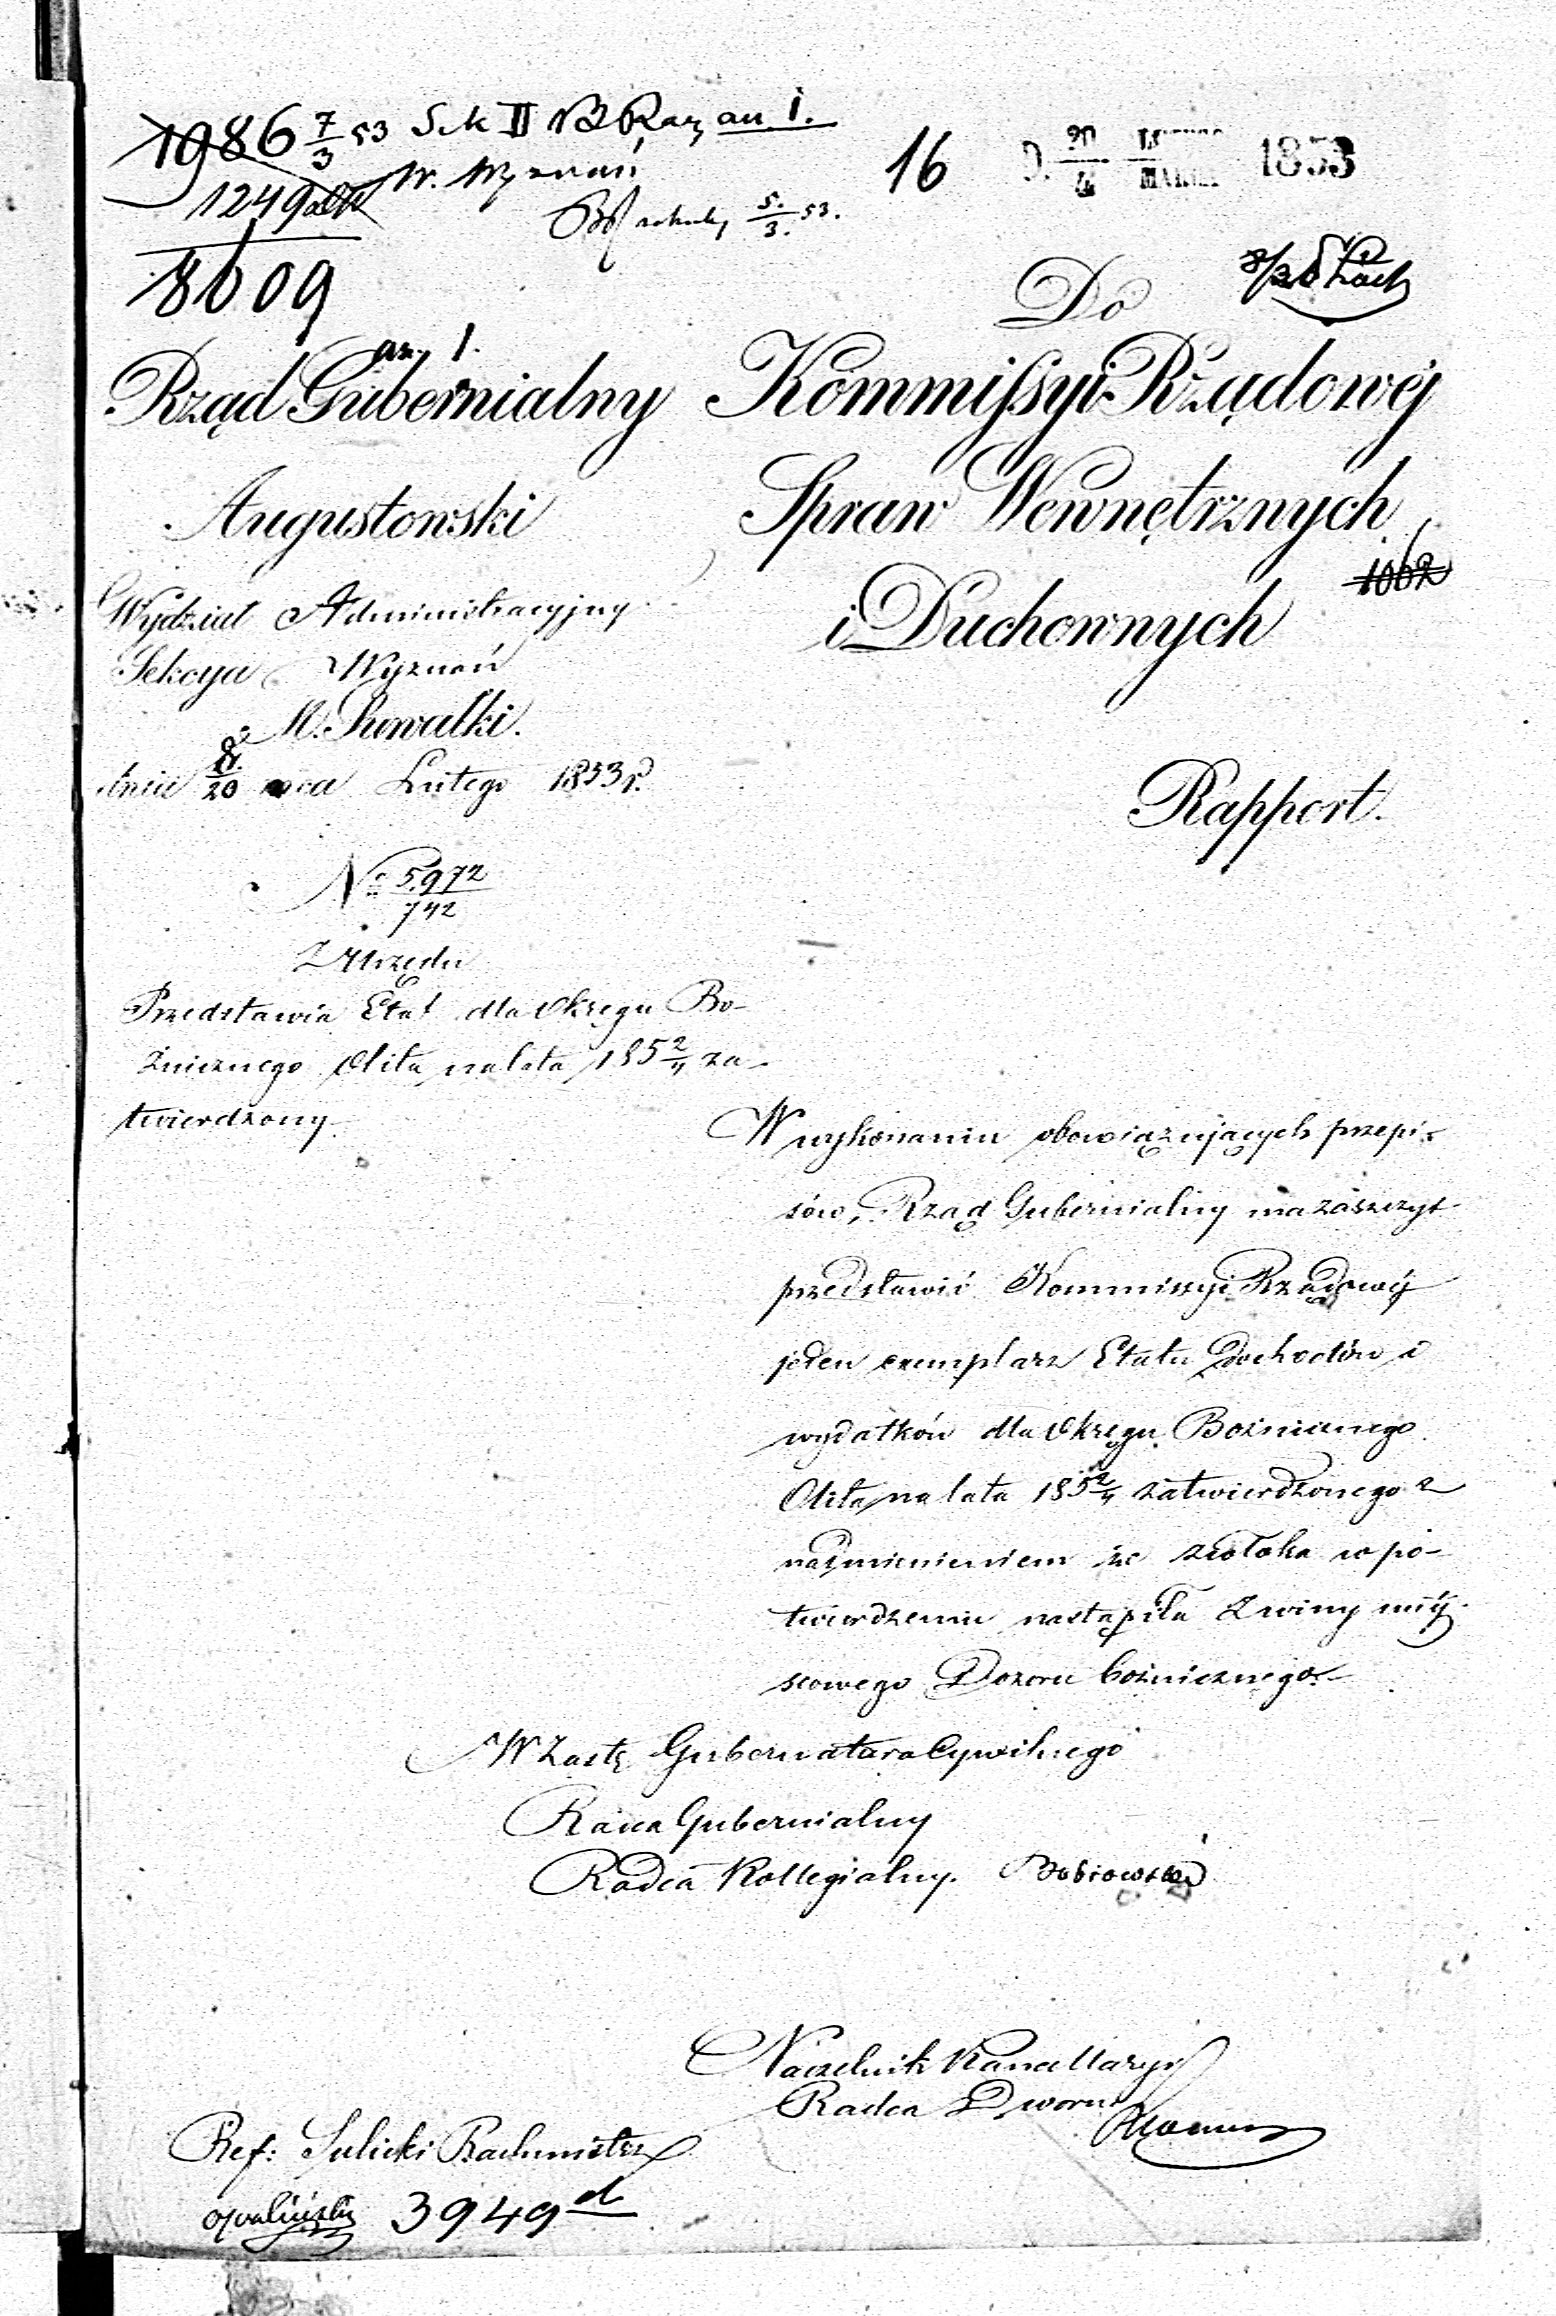 1986 7/3 53 Sek II
W. Wyznań
5./3. 53.
16
D. 20/4 1853
1249
8609
an. 1.
Do
Rząd Gubernialny
Augustowski
Kommissyi Rządowéj
Spraw Wewnętrznych
i Duchownych
1062
Wydział Administracyjny
Sekcya Wyznań
M. Suwałki.
dnia 8/20 mca Lutego 1853 r.
Rapport.
No 5972/742
Z Urzędu
Przedstawia Etat dla Okręgu Bo-
żnicznego Olita na lata 185 2/4 za-
twierdzony.
W wykonaniu obowiązujących przepi-
sów, Rząd Gubernialny ma zaszczyt
przedstawić Kommissyi Rządowéj
jeden exemplarz Etatu dochodów i
wydatków dla Okręgu Bożnicznego
Olita na lata 185 2/4 zatwierdzonego z
nadmienieniem że zwłoka w po-
twierdzeniu nastąpiła z winy miéj-
scowego Dozoru bożnicznego.-
W Zastę. Gubernatora Cywilnego
Radca Gubernialny
Radca Kollegialny.
Naczelnik Kancellaryi
Radca Dworu
Ref: Sulicki Rachmistrz
3949